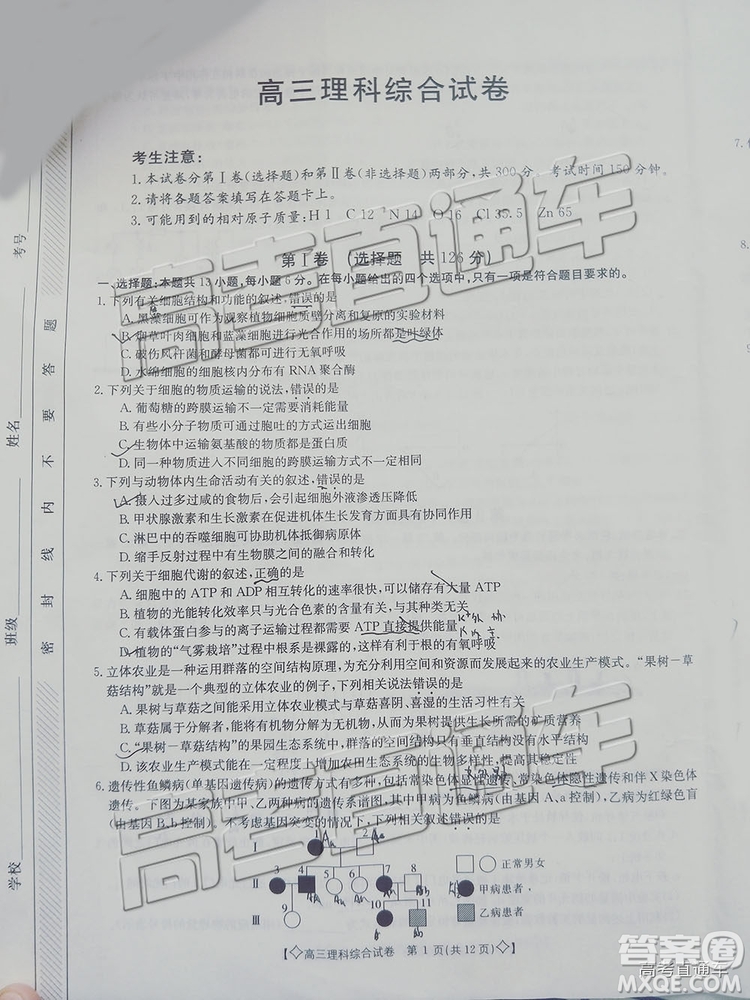 高三理科综合试卷
考生注意:
1.本试卷分第Ⅰ卷(选择题)和第Ⅱ卷(非选择题)两部分,共300分 考试时间150分钟。
2.请将各题答案填写在答题卡上。
3.可能用到的相对原子质量:H 1 C 12 N 14 O 16 Cl 35.5 Zn 65
第Ⅰ卷 (选择题 共126分)
一、选择题:本题共13小题,每小题6分。在每小题给出的四个选项中,只有一项是符合题目要求的。
1.下列有关细胞结构和功能的叙述,错误的是
A.黑藻细胞可作为观察植物细胞质壁分离和复原的实验材料
B.烟草叶肉细胞和蓝藻细胞进行光合作用的场所都是叶绿体
C.破伤风杆菌和酵母菌都能进行无氧呼吸
D.水绵细胞的细胞核内分布有RNA聚合酶
2.下列关于细胞的物质运输的说法,错误的是
A.葡萄糖的跨膜运输不一定需要消耗能量
B.有些小分子物质可通过胞吐的方式运出细胞
C.生物体中运输氨基酸的物质都是蛋白质
D.同一种物质进入不同细胞的跨膜运输方式不一定相同
3.下列与动物体内生命活动有关的叙述,错误的是
A.摄入过多过咸的食物后,会引起细胞外液渗透压降低
B.甲状腺激素和生长激素在促进机体生长发育方面具有协同作用
C.淋巴中的吞噬细胞可能来自组织液
D.缩手反射过程中有生物膜之间的融合和转化
4.下列关于细胞代谢的叙述,正确的是
A.细胞中的ATP和ADP相互转化的速率很快,可以储存有大量ATP
B.植物的光能转化效率只与光合色素的含量有关,与其种类无关
C.有载体蛋白参与的离子运输过程都需要ATP直接提供能量
D.植物的“气雾栽培”过程中根系是裸露的,这有利于根的有氧呼吸
5.立体农业是一种运用群落的空间结构原理,为充分利用空间和资源而发展起来的农业生产模式。“果树—草
菇结构”就是一个典型的立体农业的例子,下列相关说法错误的是
A.果树与草菇结构的立体农业模式与草菇喜阴、喜湿的生活习性有关
B.草菇属于分解者,能将有机物分解为无机物,有利于促进果树对土壤中的矿质营养
C.“果树—草菇结构”的果园生态系统中,群落的空间结构只有垂直结构没有水平结构
D.该农业生产模式能在一定程度上增加农田生态系统的物种多样性和稳定性
6.遗传性鱼鳞病(单基因遗传病)的遗传方式有多种,包括常染色体显性遗传、常染色体隐性遗传和伴X染色体
遗传。下图为某家族中甲、乙两种病的遗传系谱图,甲病为鱼鳞病(由基因A、a控制),乙病为红绿色盲
(由基因B、b控制)。不考虑基因突变的情况下,下列相关叙述错误的是
Ⅰ 1 2
Ⅱ 3 4 5 6 7 8
Ⅲ 9 10 11
正常男女
甲病患者
乙病患者
高三理科综合试卷 第1页(共12页)
考号
姓名
班级
学校
密封线内不要答题
高考直通车
高考直通车
答案圈
高考直通车
MXQE.COM
7.
8.